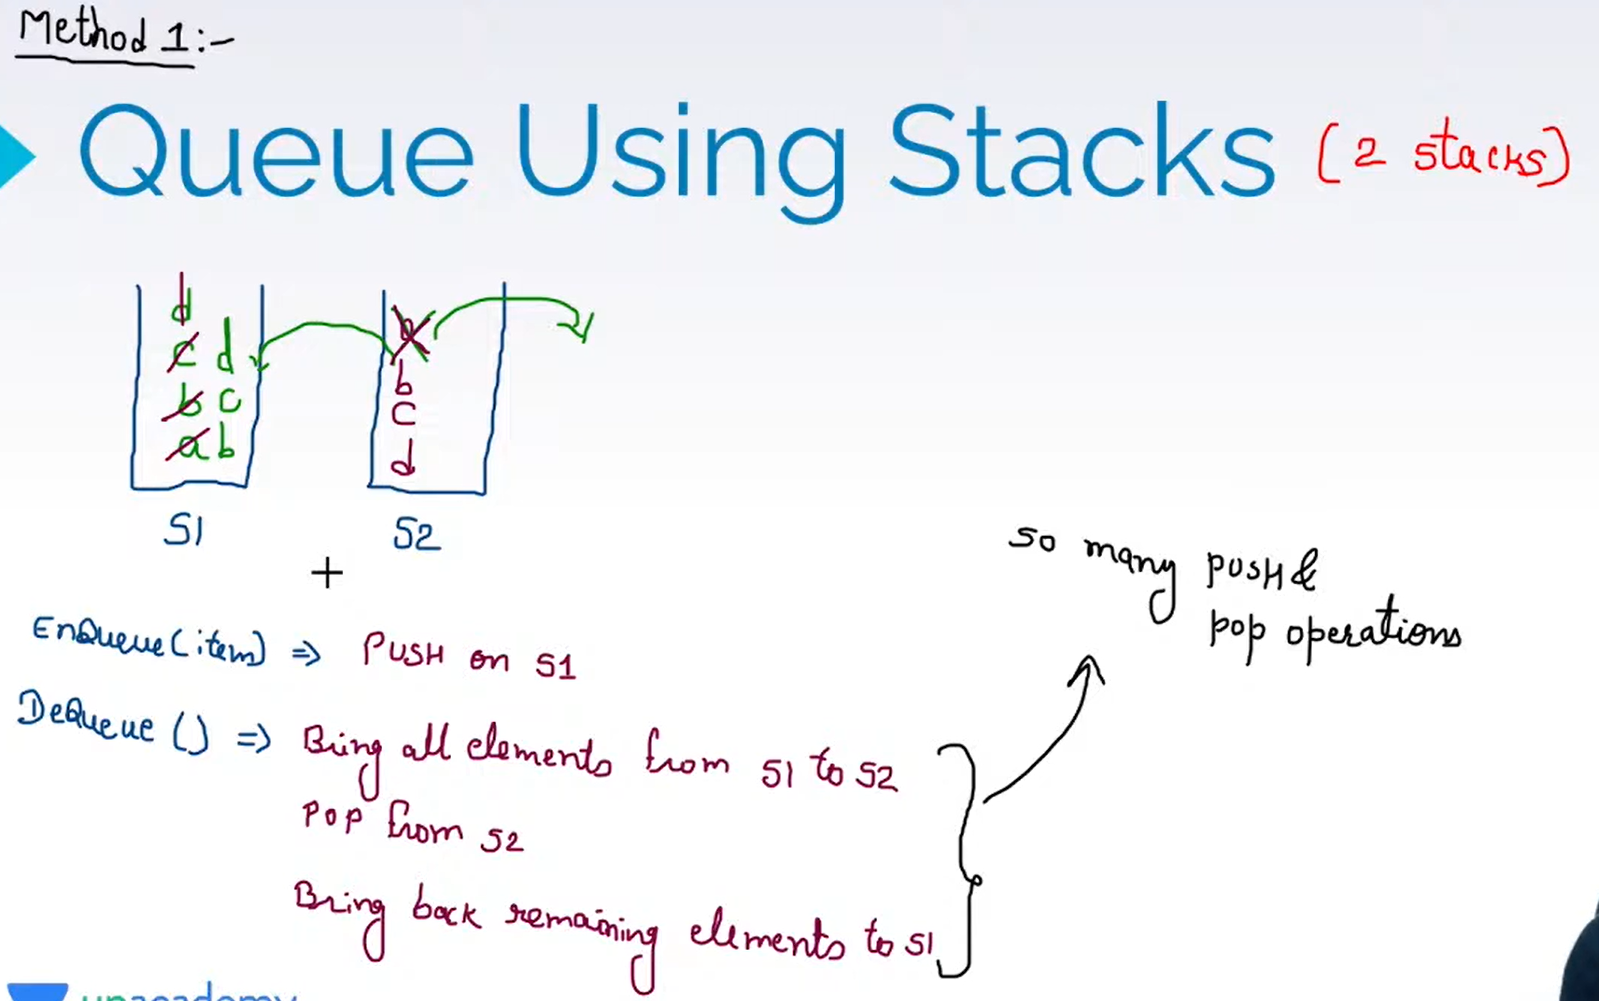 Method 1:-
Queue Using Stacks (2 stacks)
d
c d
b c
a b
b
c
d
S1 S2
+
EnQueue(item) ⇒ PUSH on S1
DeQueue() ⇒ Bring all elements from S1 to S2
POP from S2
Bring back remaining elements to S1
so many PUSH &
pop operations
unacademy